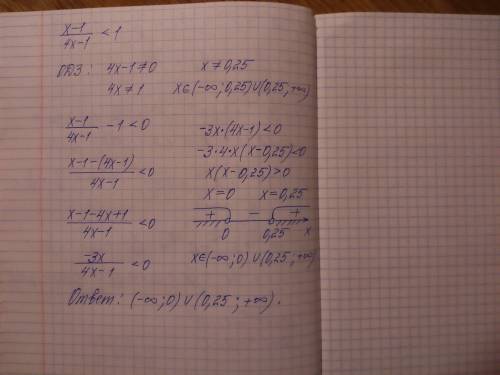 x-1/4x-1 < 1
ОДЗ: 4x-1≠0 x≠0,25
4x≠1 x∈(-∞;0,25)∪(0,25;+∞)
x-1/4x-1 -1<0 -3x·(4x-1)<0
-3·4·x(x-0,25)<0
x-1-(4x-1)/4x-1 <0 x(x-0,25)>0
x=0 x=0,25
x-1-4x+1/4x-1 <0 + - +
0 0,25 x
-3x/4x-1 <0 x∈(-∞;0)∪(0,25;+∞)
Ответ: (-∞;0)∪(0,25;+∞).